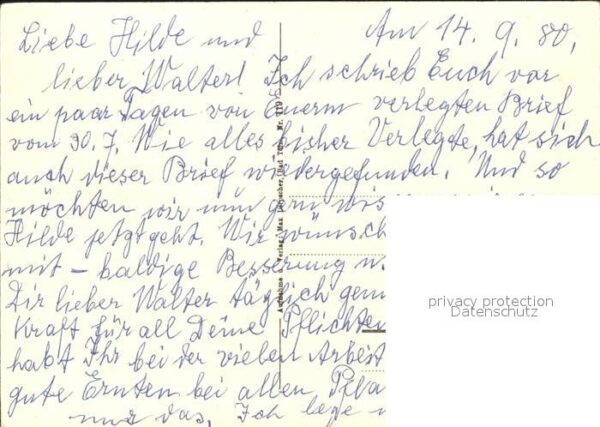 Am 14. 9. 80.
Liebe Hilde und
lieber Walter! Ich schrieb Euch vor
ein paar Tagen von Euerm verlegten Brief
vom 30.7. Wie alles bisher Verlegte, hat sich
auch dieser Brief wiedergefunden. Und so
möchten wir nun gern wis
Hilde jetzt geht. Wir wünsch
mit - baldige Besserung u.
Dir lieber Walter täglich genu
Kraft für all Deine Pflichten
habt Ihr bei der vielen Arbeit
gute Ernten bei allen
und das, Ich lege
Aufnahme u. Verlag: Max
privacy protection
Datenschutz